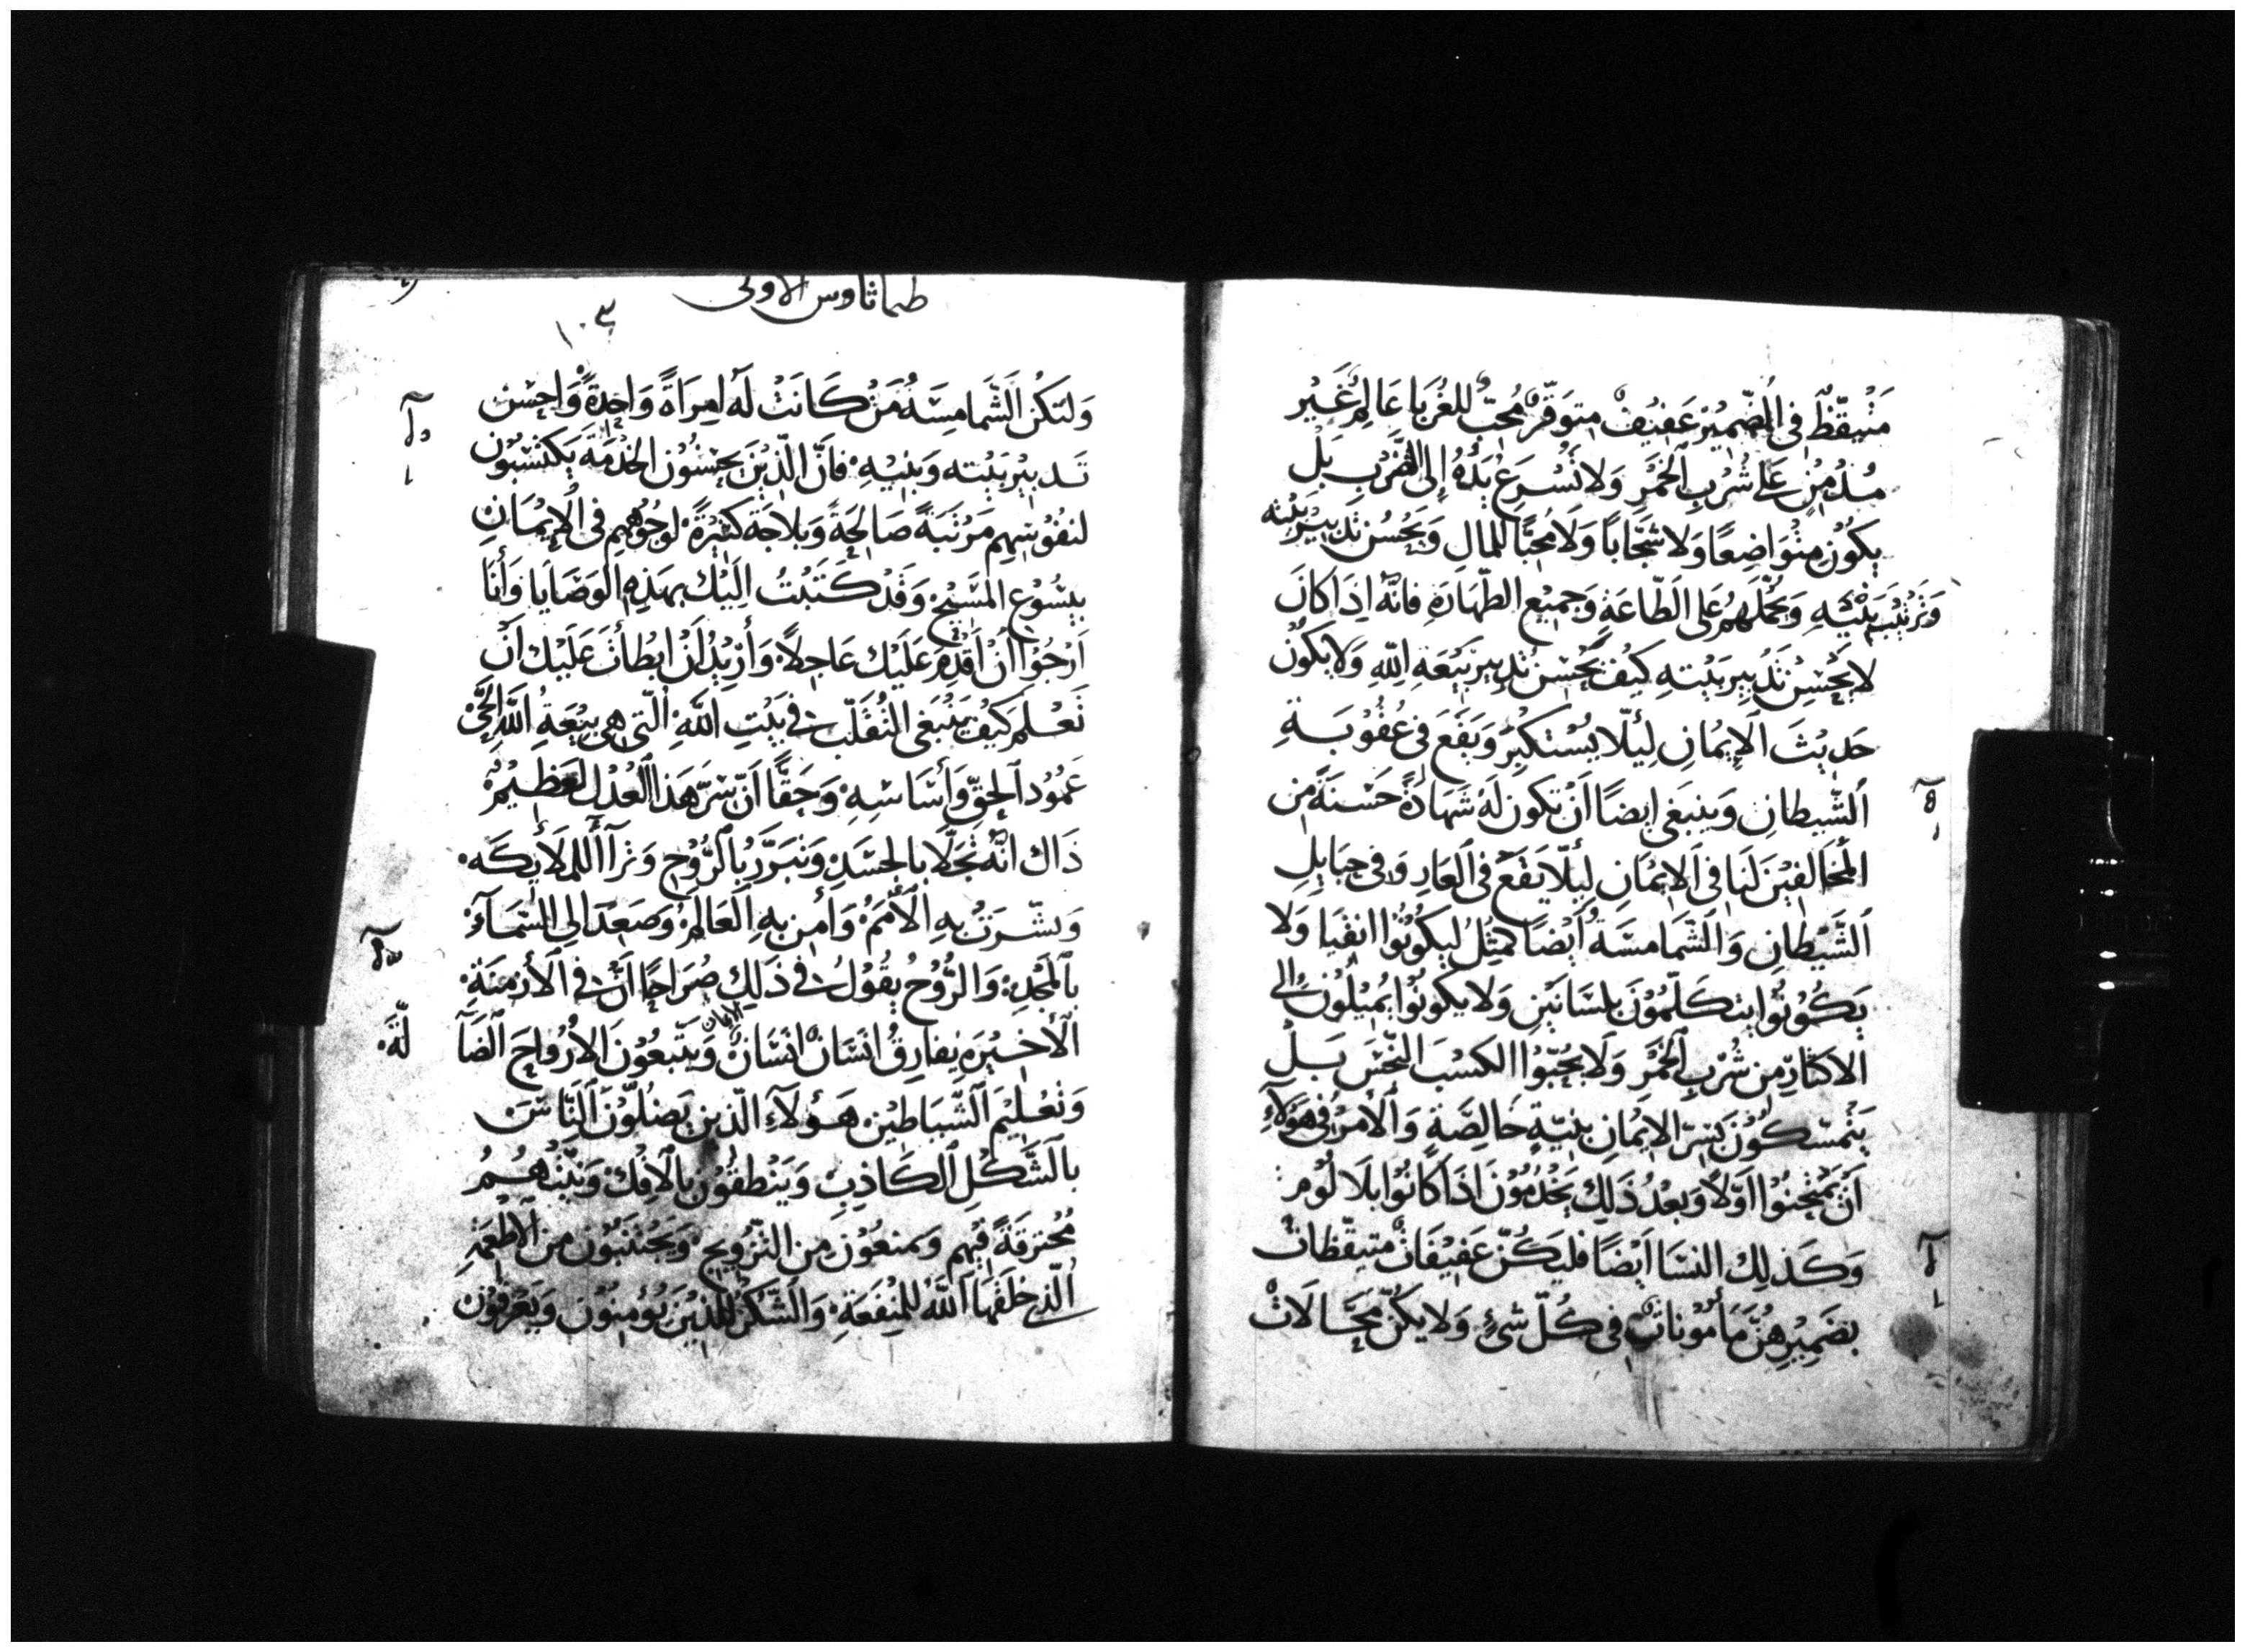 مُتيقّظٌ في الضّمِيْرِ عَفيْفٌ متوَقّرٌ مُحبٌّ للغُرَبَا عَالِمٌ غَيْر
مُدْمِنٍ عَلى شُرْبِ الْخمْرِ وَلا تُسْرعَ يَدُهُ إلى الضّرْبِ بَلْ
يكُوْن متْوَاضِعًا وَلا شَجّابًا وَلَا مُحبًّا للمَالِ وَيَحْسُن تَدبيْر بَيْته
وَتَرْتيْبَ بَنْيْهِ وَيحْمّلَهمْ عَلى الَطّاعَةِ وَجميْع الطّهَارَةِ فانّه اذَا كانَ
لا يَحْسِن تَدْبيرَ بَيْته كيْفَ يَحْسِن تَدبيرَ بَيْعَةِ اللّهِ وَلا يكُون
حَديْثَ الإيْمَانِ لئلّا يَسْتكبرْ وَيقَعَ في عُقُوْبَةِ
الشّيطانِ وَينبَغي ايضًا اَنْ تكون لهُ شهَادَةٌ حَسَنةٌ من
المُخَالفيْنَ لنَا في الايْمَانِ ليئلّا يقَع في العَارِ وَفي حبَايلِ
الشَّيْطانِ وَالشّمامسَةُ أيْضًا كمثْل ليكُونُوا انقيَا وَلا
يَكُوْنوُا يتكَلّمُوْنَ بلسَانَيْنِ وَلا يكونُوا يُميْلُون إلى
الاكثارِ من شُرْبِ الخَمْرِ وَلَا يُحبّوُا الكسْبَ النّجَسَ بَلْ
يَتمسّكوْنَ بسرّ الايْمَانِ بنيّةٍ خَالِصَةٍ وَالأمْرُ في هَؤلآءِ
أن يمْتحنُوا اوّلًا وَبعْدُ ذَلِكَ يَخْدُمُوْنَ اذَا كانُوا بلَا لَوْمٍ
وَكذلِكَ النسَا ايْضًا فليَكُنّ عَفيْفَاتٍ متيقّظاتٍ
بضَميْرهِنَّ مَأموُناتٍ في كُلّ شيْءٍ وَلا يكُنّ محَّالَاتٍ
طيماثاوس الاولى
١٠٣
وَلتكُن الشّمامسَةُ مَنْ كَانَتْ لَه امرَاةٌ وَاحِدةٌ وَاحْسَن
تَدبيْر بَيْته وَبنيْهِ فانَّ الّذيْنَ يحسْنُوْن الخدْمَةَ يَكتسْبُون
لنفُوْسهِم مَرْتبَةً صَالحَةً وَبلاجَة كثيْرَةً لوجُوْههم في الإيْمَانِ
بيسُوْع المسَيْح وَقدْ كَتَبْتُ الَيْكَ بهَذهِ الوَصَايَا وَأنَا
اَرْجُوْا أنْ أقدِمَ عَلَيْك عَاجلًا وَأرَيدُ اَنْ ابطأتُ عَلَيْك اَنْ
تَعْلَم كَيْفَ يَنْبَغي التقَلّب في بَيْتِ اللّهِ الّتي هي بيْعَةُ اللّه الحَيّ
عَمُوْد الحَقّ وَأسَاسِهِ وَحَقًّا اَنّ سّرَّ هَذا العَدْل لعَظيْمٌ
ذَاك انّه تجَلّا بالجسَدِ وَتبَرَّرَ بالرُّوْحِ وَترَآأ للملَأيكَه
وَبشّرَتْ بهِ الأمَمُ وَأمن بهِ العَالَمُ وَصَعدَ الي السّمَآء
بالمَجْدِ وَالرُّوْحُ يقُوْلُ في ذَلِكَ صُرَاحًا اَنّ في الأزمنَةِ
الأخيْرَةِ يفارقُ انسَانٌ انسَانٌ الايمان وَيتّبعُوْنَ الأرْوَاحَ الضَآ
لّهَ
وَتعْليْمَ الشّيَاطينْ هَؤلَآءِ الّذين يَضلُّوْنَ النَّاسَ
بالشَّكْلِ الكَاذبِ وَيَنْطقُوْن بالافك وَنيّتُهُمُ
مُحترقَةٌ فيْهم وَيمنعُوْن من التّزْويْج وَيَجْتنبُوْن من الأطعِمَةِ
الّتي خلقَهَا اللّه للمنفعَةِ وَالشّكْر للذيْنَ يُؤمنُوْن وَيَعْرفُوْن